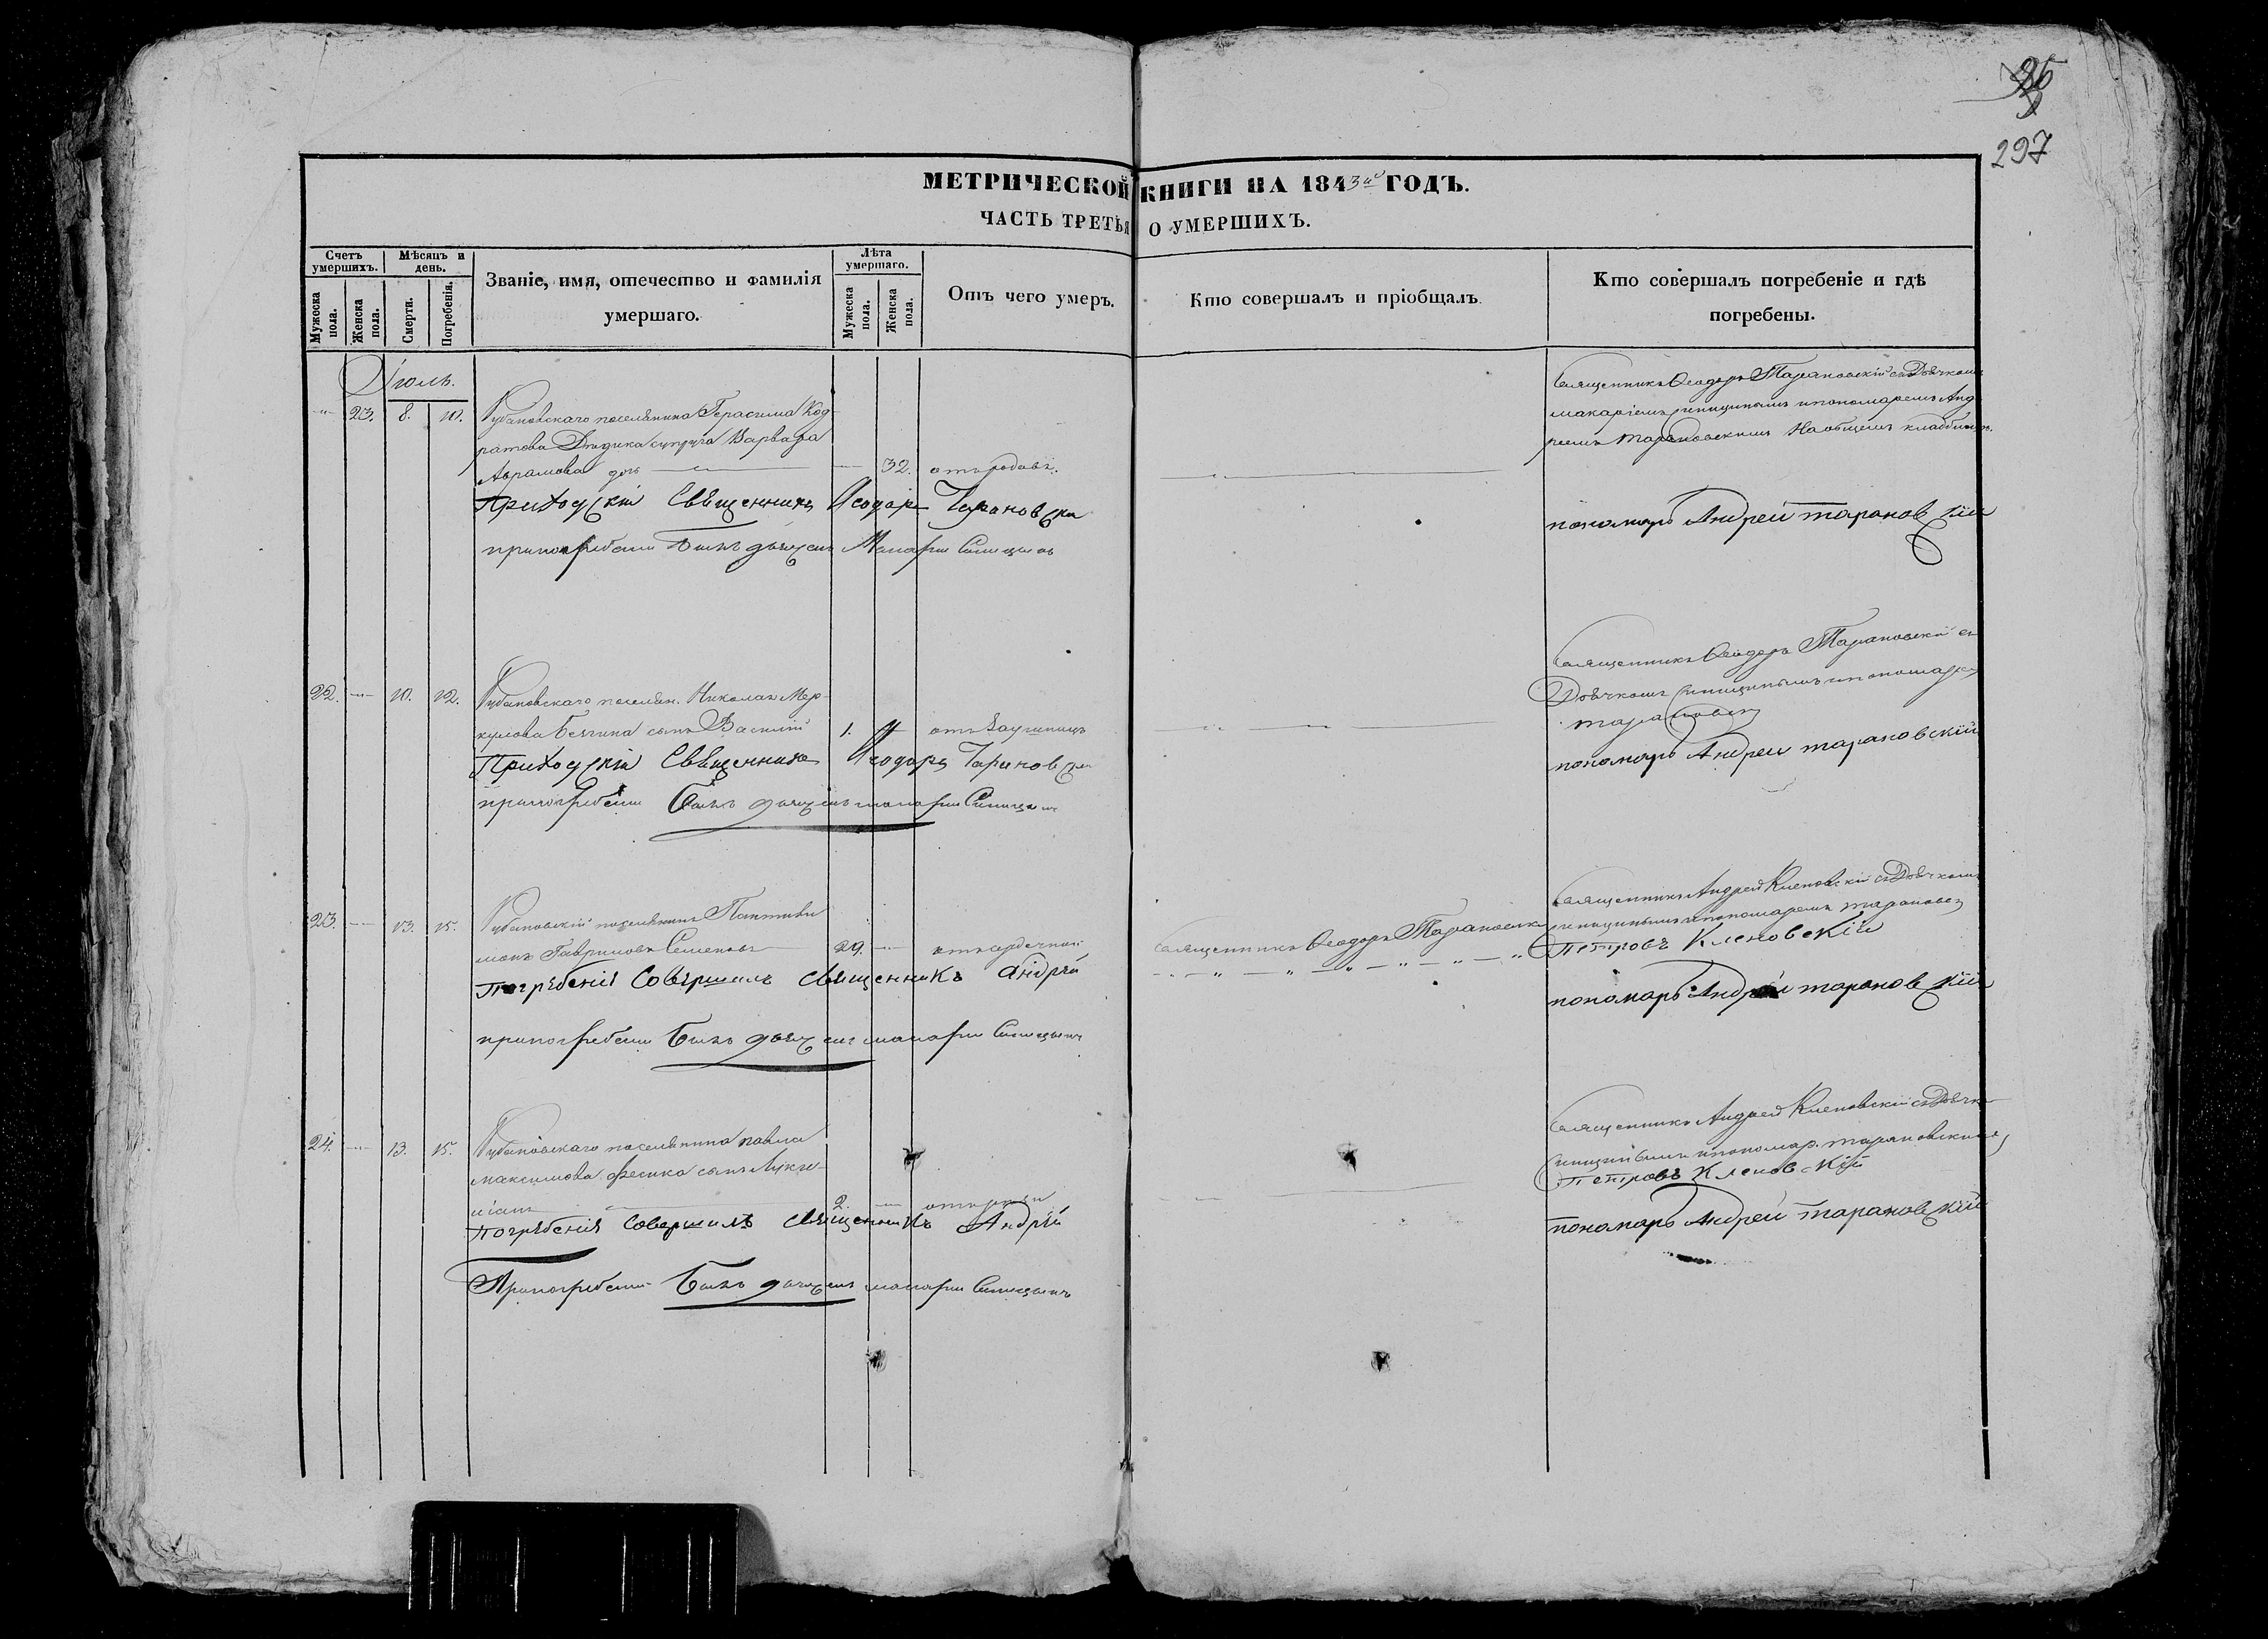 297
МЕТРИЧЕСКОЙ КНИГИ НА 1843й ГОДЪ.
ЧАСТЬ ТРЕТЬЯ О УМЕРШИХЪ.
Счетъ умершихъ.
Мужеска пола.
Женска пола.
Мѣсяцъ и день.
Смерти.
Погребенія.
Званіе, имя, отечество и фамилія
умершаго.
Лѣта умершаго.
Мужеска пола.
Женска пола.
Отъ чего умеръ.
Кто совершалъ и пріобщалъ.
Кто совершалъ погребеніе и гдѣ
погребены.
Іюль.
23. 8. 10. Рубановскаго поселянина Герасима Код
ратова супруга Варвара
Аврамова дочь 32. отъ родовъ.
Приходскій Священникъ Ѳеодоръ Тарановскій
при погребеніи былъ дьячекъ Макарій Синицынъ
Священникъ Ѳеодоръ Тарановскій съ Дьячкомъ
макаріемъ синицынымъ и пономаремъ Анд
реемъ Тарановскимъ На общемъ кладбищѣ.
пономарь Андрей тарановскій
22. 10. 12. Рубановскаго поселян. Николая Мер
курова сынъ Василій 1.
Приходскій Священникъ Ѳеодоръ Тарановскій
при погребеніи былъ дьячекъ макарій Синицынъ
Священникъ Ѳеодоръ Тарановскій съ
Дьячкомъ Синицынымъ и пономаре
тарановск
пономарь Андрей тарановскій
23. 13. 15. Рубановскій поселянинъ Пантелей
монъ Гавриловъ Семеновъ 29. отъ сердечной
Погрѣбеніе Совершилъ Священникъ Андрѣй
при погребеніи былъ дьячекъ макарій Синицынъ
Священникъ Ѳеодоръ Тарановскій
Священникъ Андрей Кленовскій съ Дьячкомъ
синицынымъ и пономаремъ тарановск
Петровъ Кленовскій
пономарь Андрей тарановскій
24. 13. 15. Рубановскаго поселянина павла
максимова сынъ Лукі
ианъ 2.
Погрѣбеніе Совершилъ Священникъ Андрѣй
При погребеніи былъ дьячекъ макарій Синицынъ
Священникъ Андрей Кленовскій съ Дьячк
Синицынымъ и пономар. тарановским
Петровъ Кленовскій
пономарь Андрей тарановскій